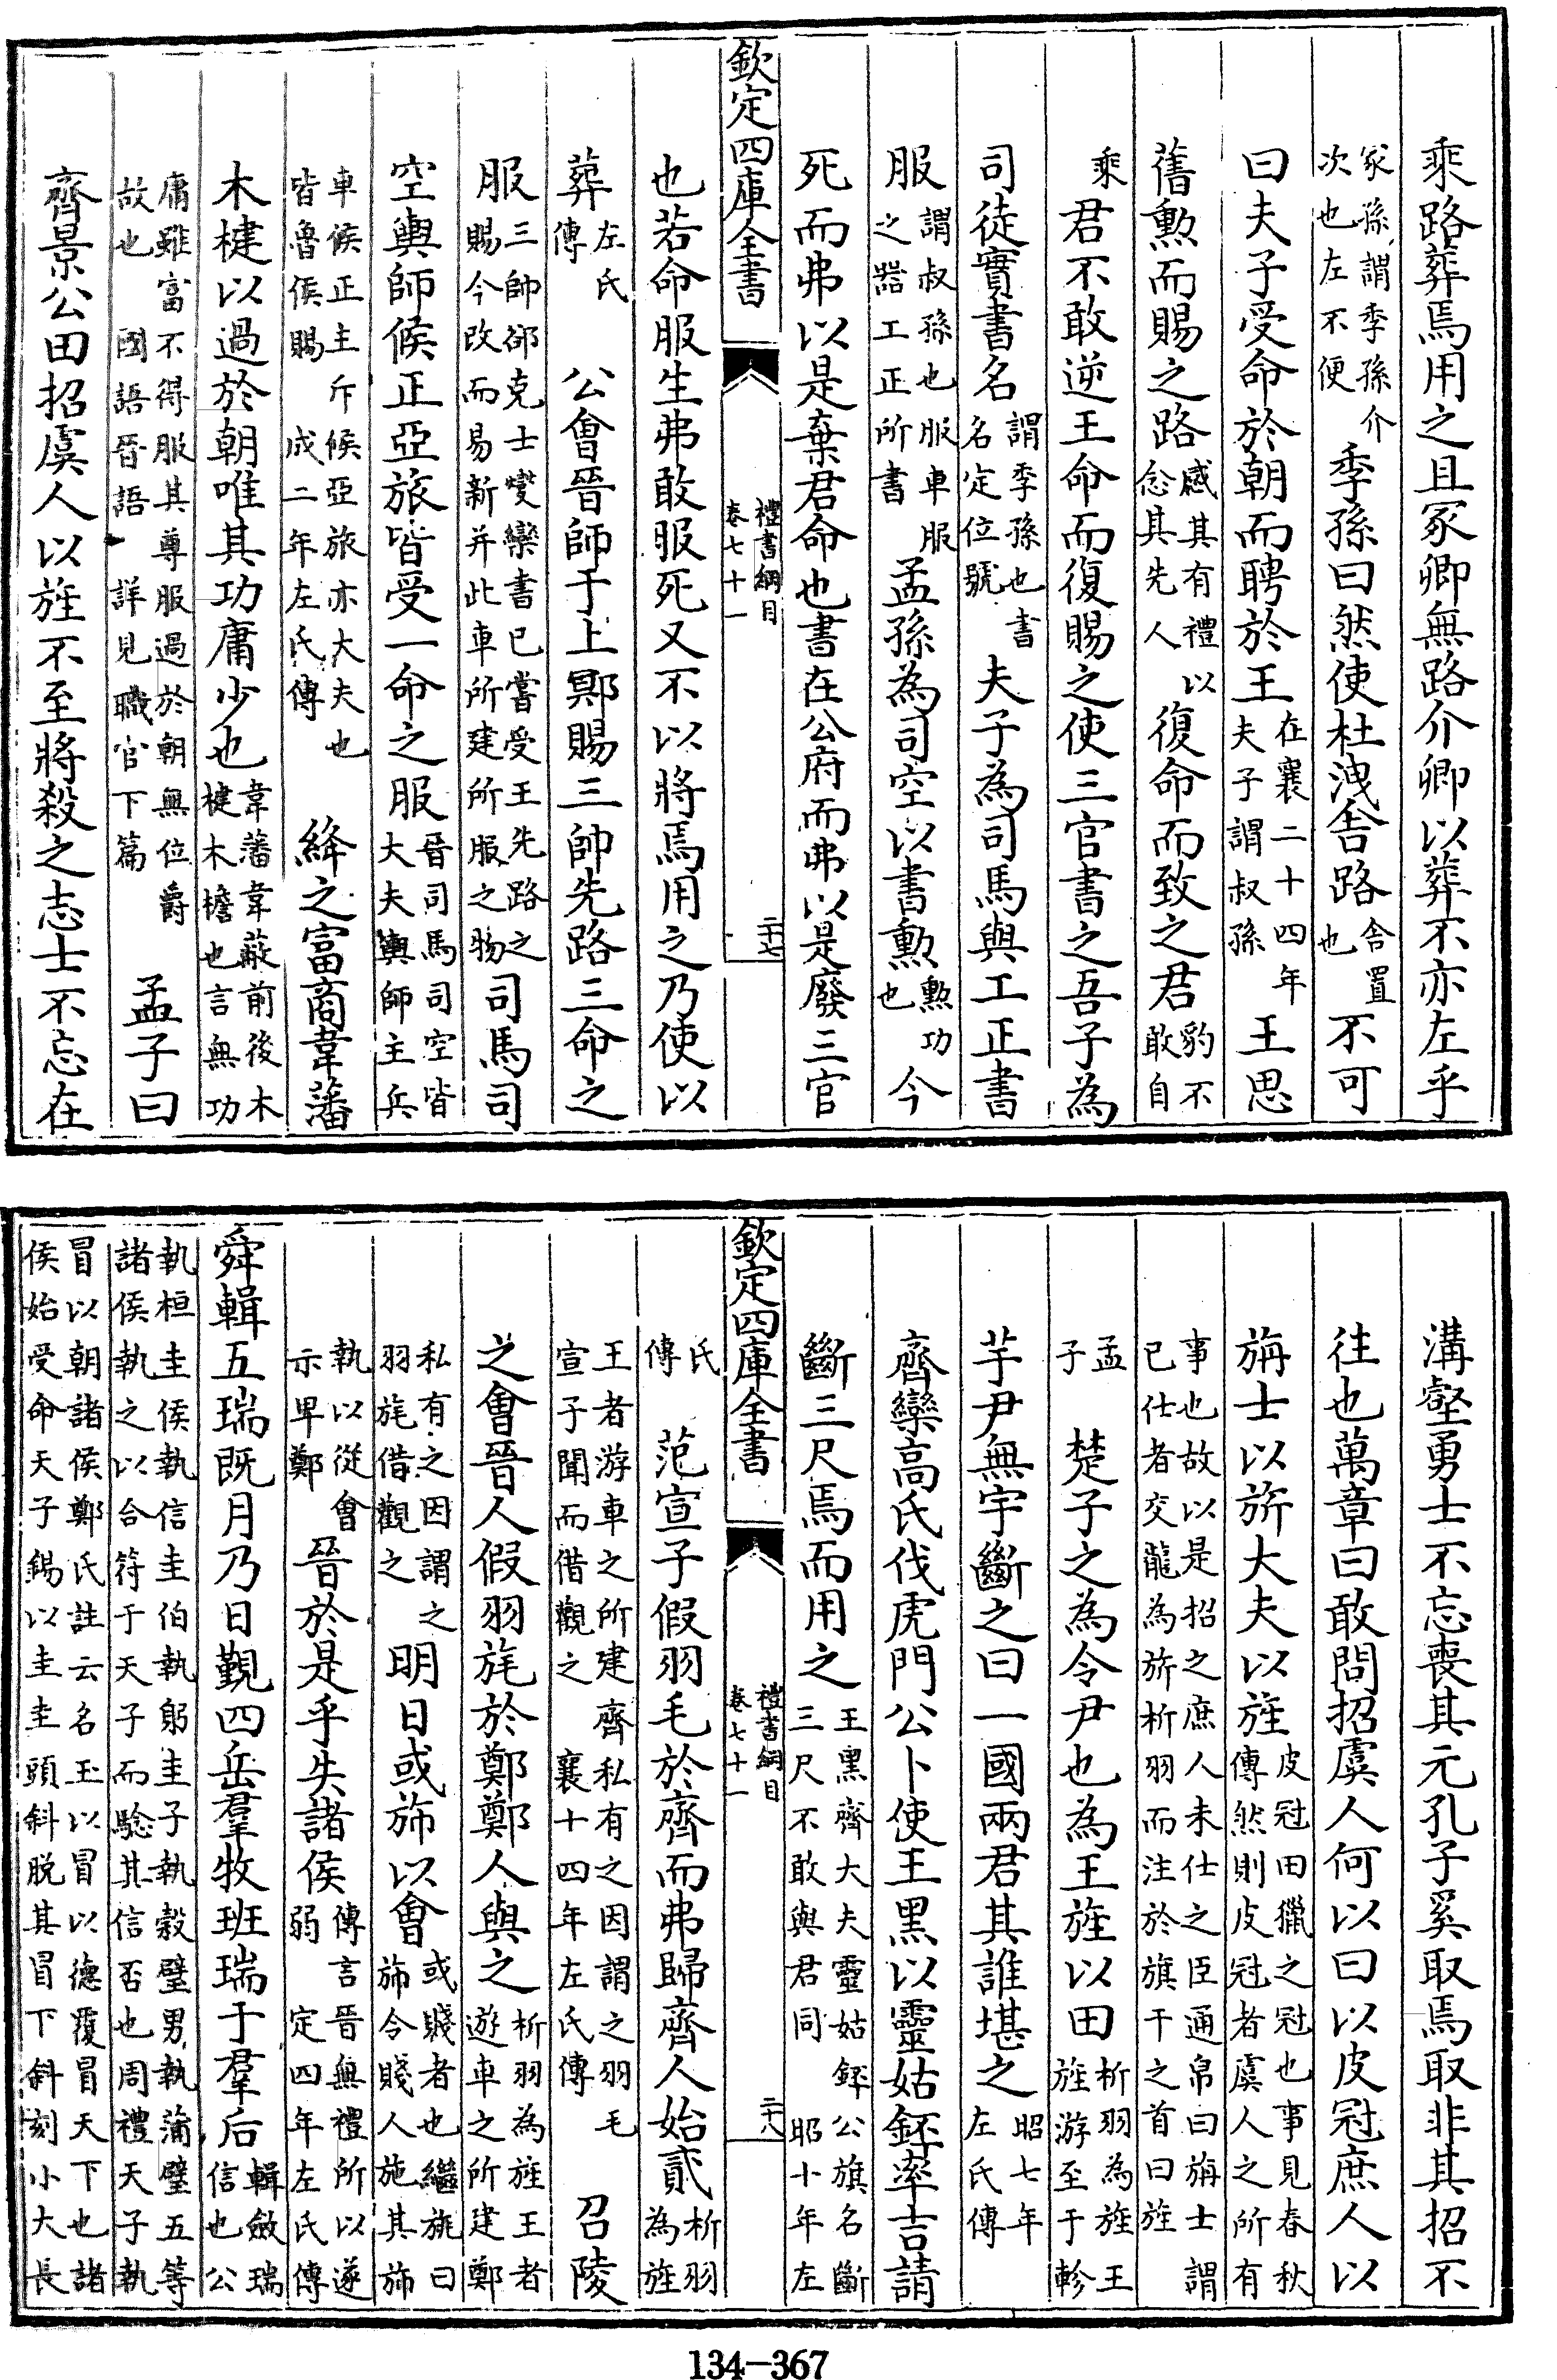 乘路葬焉用之且冢卿無路介卿以葬不亦左乎
冢孫謂季孫介次也左不便季孫曰然使杜洩舍路舍置也不可
曰夫子受命於朝而聘於王在襄二十四年夫子謂叔孫王思
舊勲而賜之路感其有禮以念其先人復命而致之君豹不敢自
乘君不敢逆王命而復賜之使三官書之吾子為
司徒實書名謂季孫也書名定位號夫子為司馬與工正書
服謂叔孫也服車服之器工正所書孟孫為司空以書勲勲功也今
死而弗以是棄君命也書在公府而弗以是廢三官
欽定四庫全書 禮書綱目卷七十一 二十七
也若命服生弗敢服死又不以將焉用之乃使以
葬左氏傳 公會晉師于上鄍賜三帥先路三命之
服三帥郤克士燮欒書已嘗受王先路之賜今改而易新并此車所建所服之物司馬司
空輿師候正亞旅皆受一命之服晉司馬司空皆大夫輿師主兵
車候正主斥候亞旅亦大夫也皆魯侯賜 成二年左氏傳 絳之富商韋藩
木楗以過於朝唯其功庸少也韋藩韋蔽前後木楗木檐也言無功
庸雖富不得服其尊服過於朝無位爵故也 國語晉語 詳見職官下篇 孟子曰
齊景公田招虞人以旌不至將殺之志士不忘在
溝壑勇士不忘喪其元孔子奚取焉取非其招不
往也萬章曰敢問招虞人何以曰以皮冠庶人以
旃士以旂大夫以旌皮冠田獵之冠也事見春秋傳然則皮冠者虞人之所有
事也故以是招之庶人未仕之臣通帛曰旃士謂已仕者交龍為旂析羽而注於旗干之首曰旌
孟子 楚子之為令尹也為王旌以田析羽為旌王旌游至于軫
芋尹無宇斷之曰一國兩君其誰堪之昭七年左氏傳
齊欒高氏伐虎門公卜使王黑以靈姑鉟率吉請
斷三尺焉而用之王黑齊大夫靈姑鉟公旗名斷三尺不敢與君同 昭十年左
欽定四庫全書 禮書綱目卷七十一 二十八
氏傳 范宣子假羽毛於齊而弗歸齊人始貳析羽為旌
王者游車之所建齊私有之因謂之羽毛宣子聞而借觀之 襄十四年左氏傳 召陵
之會晉人假羽旄於鄭鄭人與之析羽為旌王者遊車之所建鄭
私有之因謂之羽旄借觀之明日或旆以會或賤者也繼旐曰旆令賤人施其旆
執以從會示卑鄭晉於是乎失諸侯傳言晉無禮所以遂弱 定四年左氏傳
舜輯五瑞既月乃日覲四岳羣牧班瑞于羣后輯斂瑞信也公
執桓圭侯執信圭伯執躬圭子執穀璧男執蒲璧五等諸侯執之以合符于天子而驗其信否也周禮天子執
冒以朝諸侯鄭氏註云名玉以冒以德覆冒天下也諸侯始受命天子錫以圭圭頭斜脫其冒下斜刻小大長
134-367